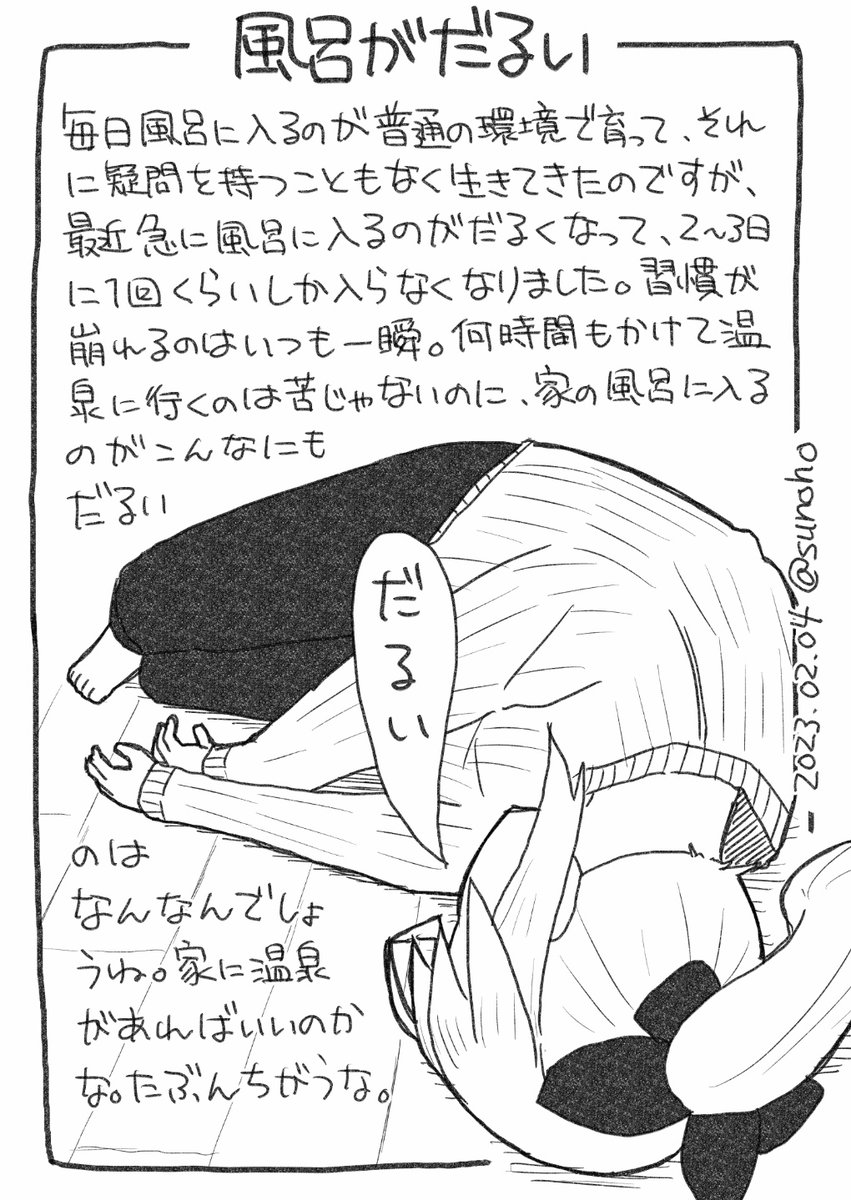 風呂がだるい
毎日風呂に入るのが普通の環境で育って、それ
に疑問を持つこともなく生きてきたのですが、
最近急に風呂に入るのがだるくなって、2~3日
に1回くらいしか入らなくなりました。習慣が
崩れるのはいつも一瞬。何時間もかけて温
泉に行くのは苦じゃないのに、家の風呂に入る
のがこんなにも
だるい
だるい
のは
なんなんでしょ
うね。家に温泉
があればいいのか
な。たぶんちがうな。
- 2023.02.04 @sunoho